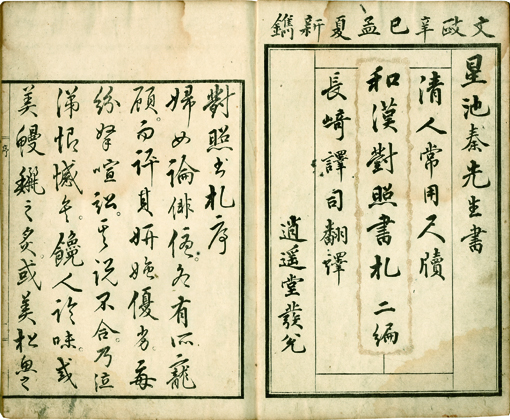 文政辛巳孟夏新鐫
星池秦先生書
清人常用尺牘
和漢對照書札 二編
長崎譯司翻譯
逍遥堂發兌
對照書札序
婦女論俳優各有所寵
顧。而評其妍媸優劣。每
紛拏喧訟。其說不合。乃泣
涕恨憾。饞人論味。或
美鰻鱺之炙或美松魚之
序